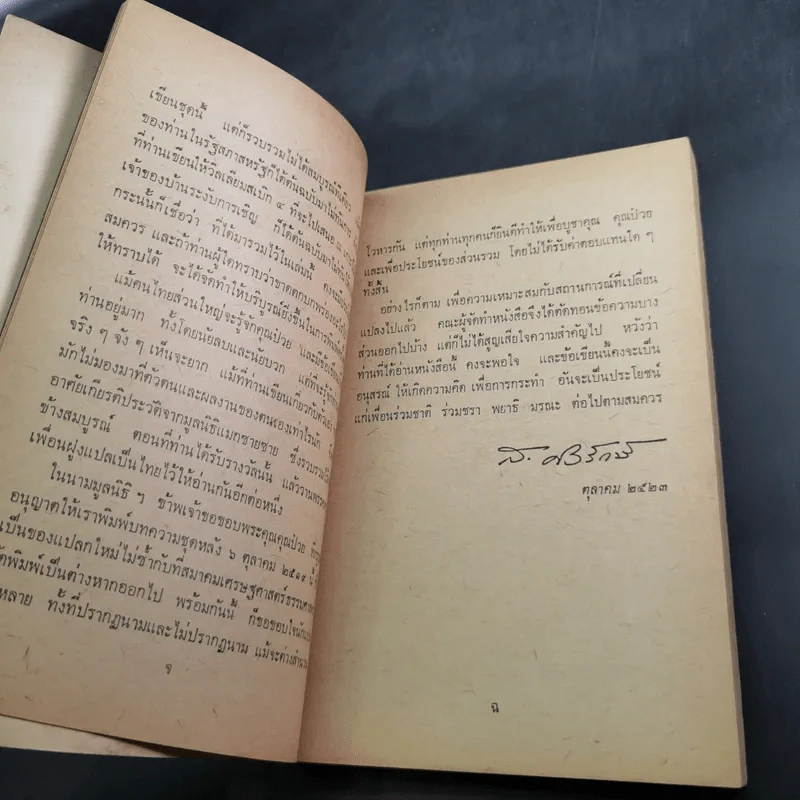 เขียนชุดนี้ แต่ก็รวบรวมไม่ได้สมบูรณ์ทีเดียว
ของท่านในรัฐสภาสหรัฐก็ได้ต้นฉบับมาไม่ทันการ
ที่ท่านเขียนให้วิลเลียมสเบิก ๔ ที่จะไปเสนอ ณ
เจ้าของบ้านระงับการเชิญ ก็ได้ต้นฉบับมาไม่ทัน
กระนั้นก็เชื่อว่า ที่ได้มารวมไว้ในเล่มนี้ คงจะ
สมควร และถ้าท่านผู้ใดทราบว่าขาดตกบกพร่อง
ให้ทราบได้ จะได้จัดทำให้บริบูรณ์ยิ่งขึ้นในการพิมพ์
แม้คนไทยส่วนใหญ่จะรู้จักคุณป๋วย และมีข้อเขียน
ท่านอยู่มาก ทั้งโดยนัยลบและนัยบวก แต่ที่จะรู้จัก
จริง ๆ จัง ๆ เห็นจะยาก แม้ที่ท่านเขียนเกี่ยวกับตัวเอง
มักไม่มองมาที่ตัวตนและผลงานของตนเองเท่าไรนัก
อาศัยเกียรติประวัติจากมูลนิธิแมกซายซาย ซึ่งรวบรวมไว้
ข้างสมบูรณ์ ตอนที่ท่านได้รับรางวัลนั้น แล้ววาน
เพื่อนฝูงแปลเป็นไทยไว้ให้อ่านกันอีกต่อหนึ่ง
ในนามมูลนิธิ ๆ ข้าพเจ้าขอขอบพระคุณคุณป๋วย
อนุญาตให้เราพิมพ์บทความชุดหลัง ๖ ตุลาคม ๒๕๑๙
เป็นของแปลกใหม่ไม่ซ้ำกับที่สมาคมเศรษฐศาสตร์ธรรมศาสตร์
ได้พิมพ์เป็นต่างหากออกไป พร้อมกันนี้ ก็ขอขอบใจ
หลาย ทั้งที่ปรากฏนามและไม่ปรากฏนาม แม้จะต่างสำนวน
จ
โวหารกัน แต่ทุกท่านทุกคนก็ยินดีทำให้เพื่อบูชาคุณ คุณป๋วย
และเพื่อประโยชน์ของส่วนรวม โดยไม่ได้รับค่าตอบแทนใด ๆ
ทั้งสิ้น
อย่างไรก็ตาม เพื่อความเหมาะสมกับสถานการณ์ที่เปลี่ยน
แปลงไปแล้ว คณะผู้จัดทำหนังสือจึงได้ตัดทอนข้อความบาง
ส่วนออกไปบ้าง แต่ก็ไม่ได้สูญเสียใจความสำคัญไป หวังว่า
ท่านที่ได้อ่านหนังสือนี้ คงจะพอใจ และข้อเขียนนี้คงจะเป็น
อนุสรณ์ ให้เกิดความคิด เพื่อการกระทำ อันจะเป็นประโยชน์
แก่เพื่อนร่วมชาติ ร่วมชรา พยาธิ มรณะ ต่อไปตามสมควร
ส. ศิวรักษ์
ตุลาคม ๒๕๒๓
ฉ